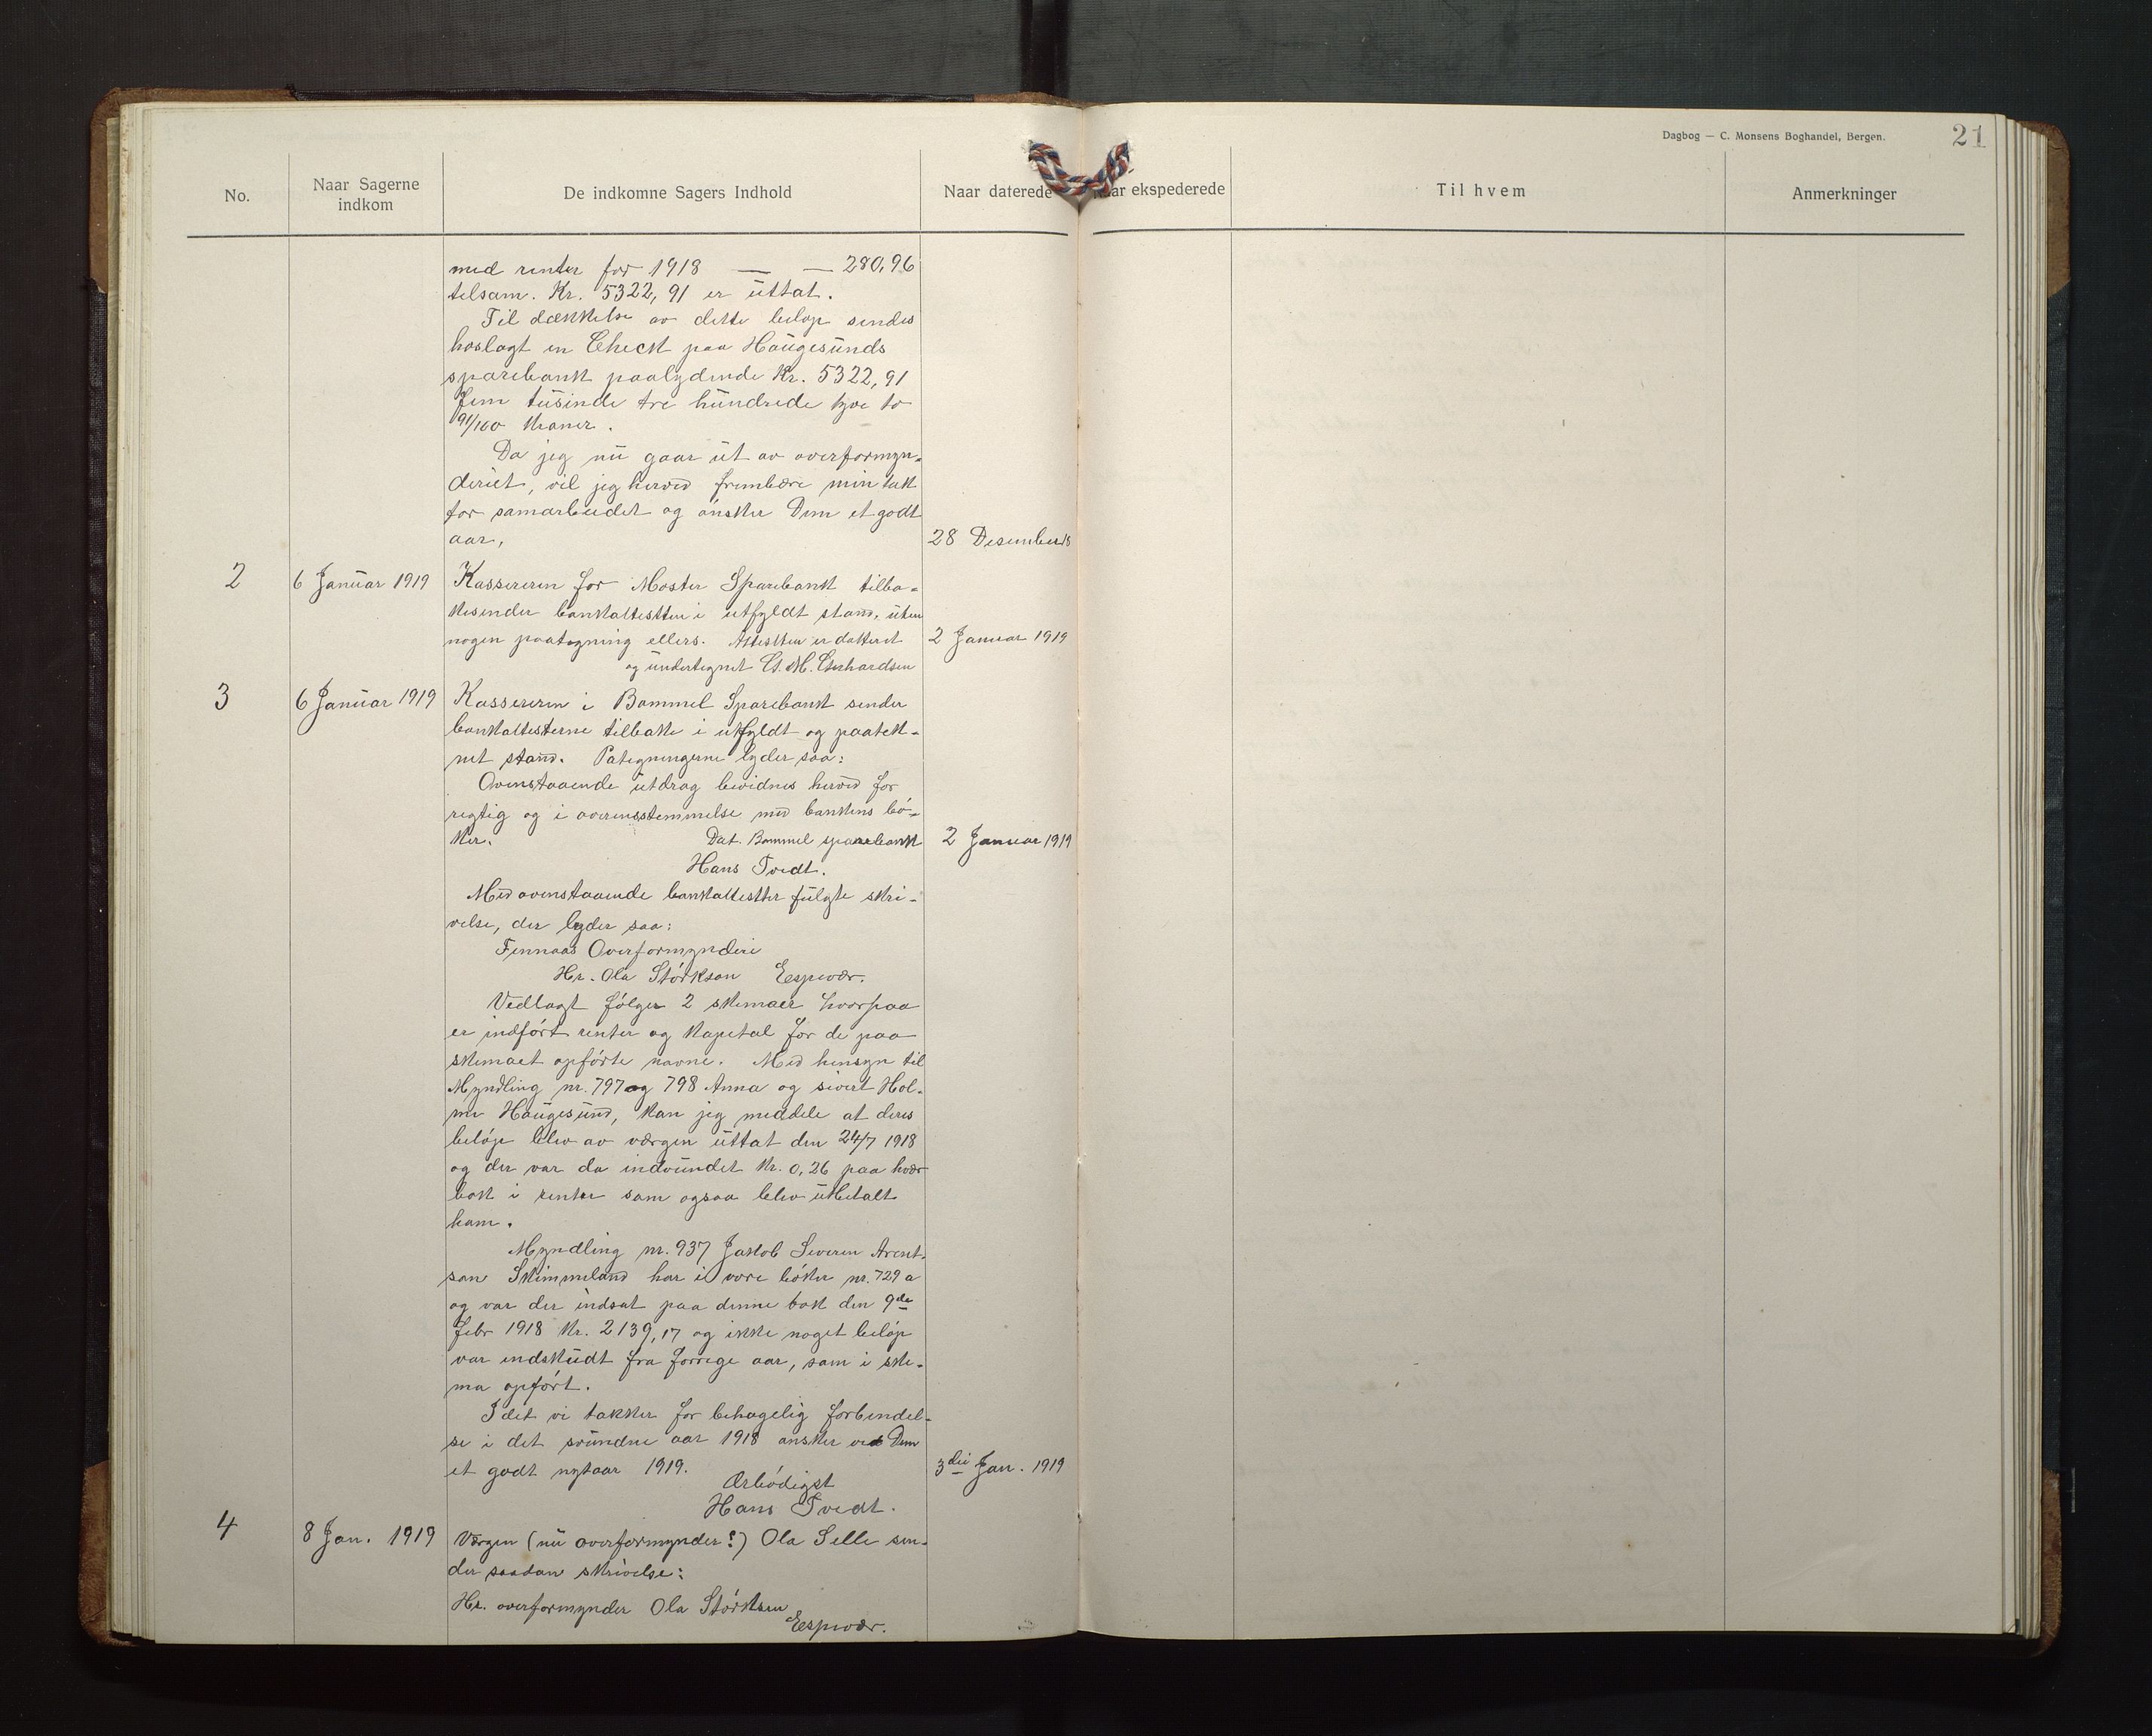 Dagbog — C. Monsens Boghandel, Bergen.
21
No.
Naar Sagerne indkom
De indkomne Sagers Indhold
Naar daterede
Naar ekspederede
Til hvem
Anmerkninger
med renter for 1918 — — 280,96
tilsam. Kr. 5322,91 er uttat.
Til dækkelse av dette beløp sendes
hoslagt en Check paa Haugesunds
sparebank paalydende Kr. 5322,91
Fem tusinde tre hundrede tyve to
91/100 Kroner.
Da jeg nu gaar ut av overformyn-
deriet, vil jeg herved frembære min takk
for samarbeidet og ønsker Dem et godt
aar,
28 Desember 18
2
6 Januar 1919
Kassereren for Moster Sparebank tilba-
kesender bankattesten i utfyldt stand, uten
nogen paategning ellers. Attesten er dattert
2 Januar 1919
og undertegnet M. Gerhardsen
3
6 Januar 1919
Kassereren i Bømmel Sparebank sender
bankattesterne tilbake i utfyldt og paatek-
net stand. Pategningerne lyder saa:
Ovenstaaende utdrag bevidnes herved for
rigtig og i overensstemmelse med bankens bø-
ker. Dat. Bømmel sparebank
2 Januar 1919
Hans Tvedt.
Med ovenstaaende bankattester fulgte skri-
velse, der lyder saa:
Finnaas Overformynderi
Hr. Ola Størkson Espevær.
Vedlagt følger 2 skemaer hvorpaa
er indført renter og Kapital for de paa
skemaet opførte navne. Med hensyn til
Myndling nr. 797 og 798 Anna og sivert Hol-
me Haugesund, kan jeg meddele at deres
beløp blev av værgen uttat den 24/7 1918
og der var da indvundet Kr. 0,26 paa hver
bok i renter som ogsaa blev utbetalt
ham.
Myndling nr. 937 Jakob Severin Arent-
son Skimmeland har i vore bøker nr. 729 a
og var der indsat paa denne bok den 9de
febr 1918 Kr. 2139,17 og ikke noget beløp
var indskudt fra forrige aar, som i ske-
ma opført.
I det vi takker for behagelig forbindel-
se i det svundne aar 1918 ønsker vi Dem
et godt nytaar 1919.
3die Jan. 1919
Ærbødigst
Hans Tvedt.
4
8 Jan. 1919
Værgen (nu overformynder?) Ola Selle sen-
der saadan skrivelse:
Hr. overformynder Ola Størksen
Espevær.